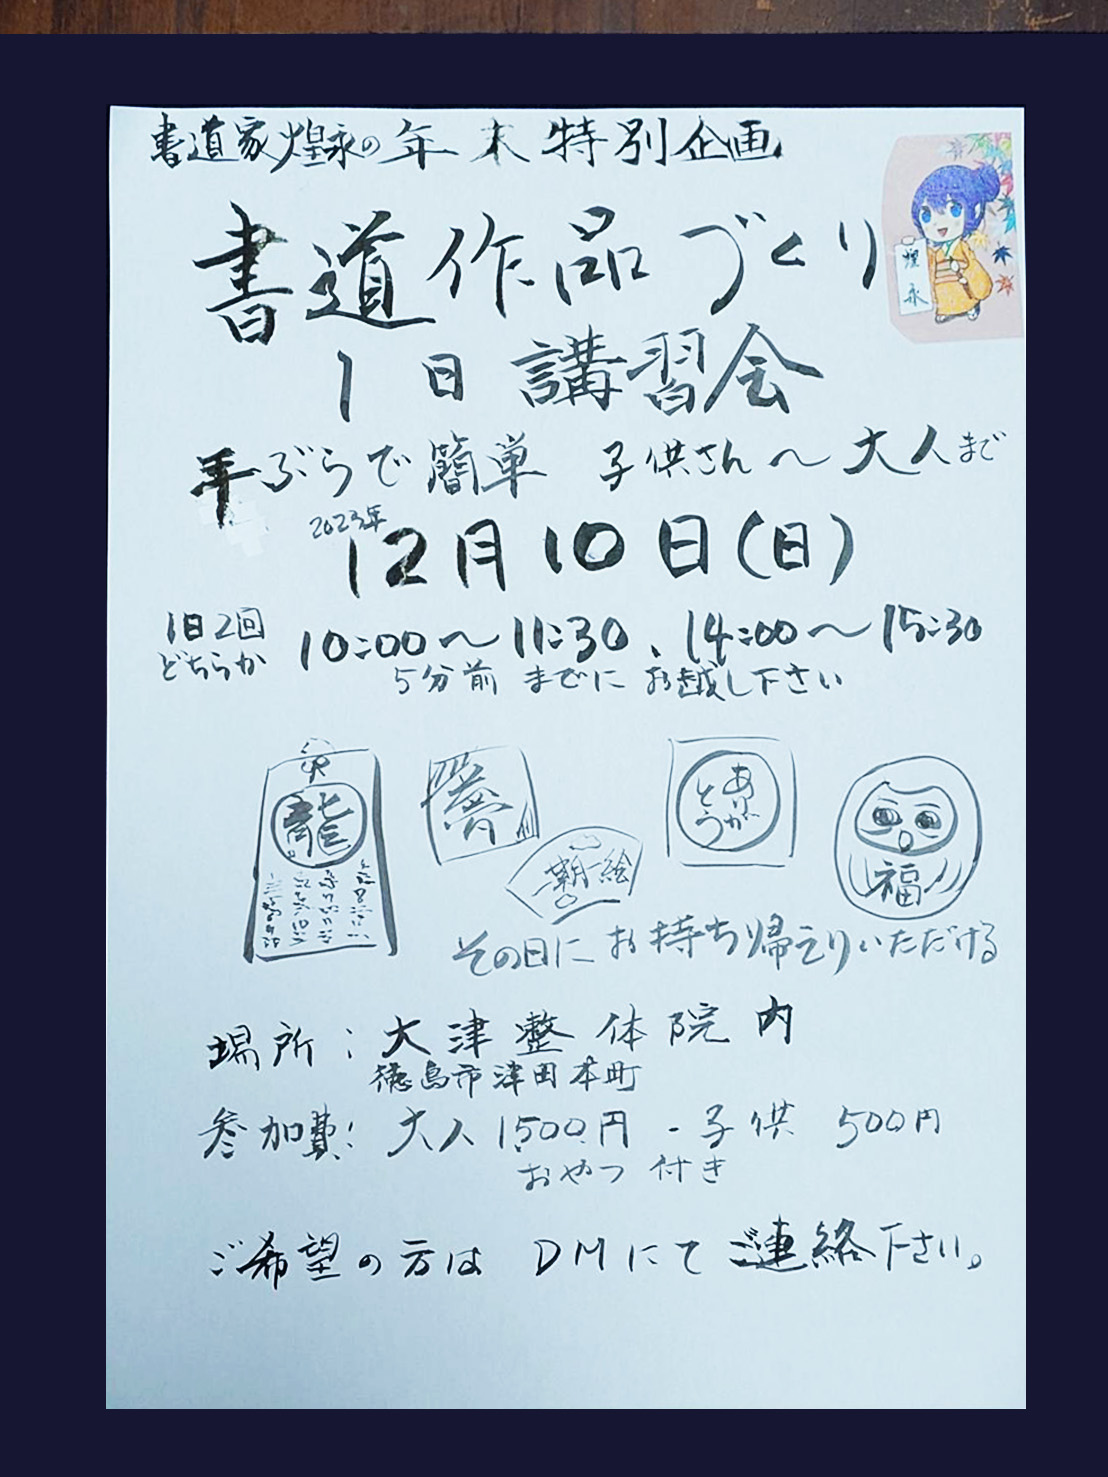 書道家煌永の年末特別企画
煌永
書道作品づくり
1日講習会
手ぶらで簡単 子供さん〜大人まで
2023年
12月10日(日)
1日2回
どちらか
10:00〜11:30、14:00〜15:30
5分前までにお越し下さい
龍
ありがとう
福
その日にお持ち帰えりいただける
場所:大津整体院内
徳島市津田本町
参加費:大人1500円-子供 500円
おやつ付き
ご希望の方は DMにてご連絡下さい。